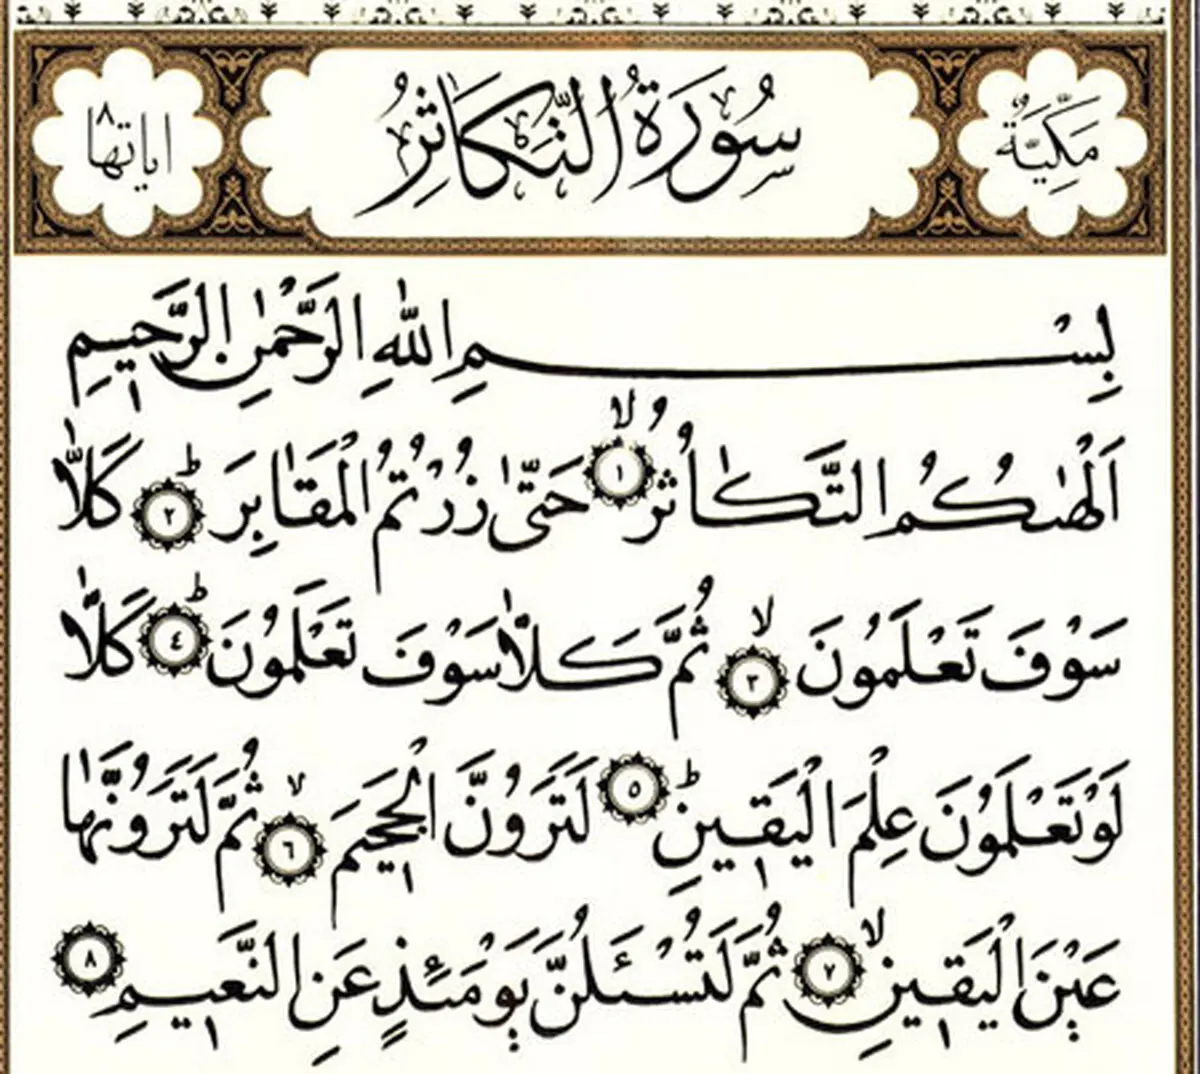 مَكِّيَّةٌ
سُورَةُ التَّكَاثُرِ
اياتها ٨
بِسْمِ اللّٰهِ الرَّحْمٰنِ الرَّحِيمِ
اَلْهٰىكُمُ التَّكَاثُرُ ﴿١﴾ۙ حَتّٰى زُرْتُمُ الْمَقَابِرَ ﴿٢﴾ؕ كَلَّا
سَوْفَ تَعْلَمُونَ ﴿٣﴾ۙ ثُمَّ كَلَّا سَوْفَ تَعْلَمُونَ ﴿٤﴾ؕ كَلَّا
لَوْ تَعْلَمُونَ عِلْمَ الْيَقِينِ ﴿٥﴾ؕ لَتَرَوُنَّ الْجَحِيمَ ﴿٦﴾ۙ ثُمَّ لَتَرَوُنَّهَا
عَيْنَ الْيَقِينِ ﴿٧﴾ۙ ثُمَّ لَتُسْـَٔلُنَّ يَوْمَئِذٍ عَنِ النَّعِيمِ ﴿٨﴾